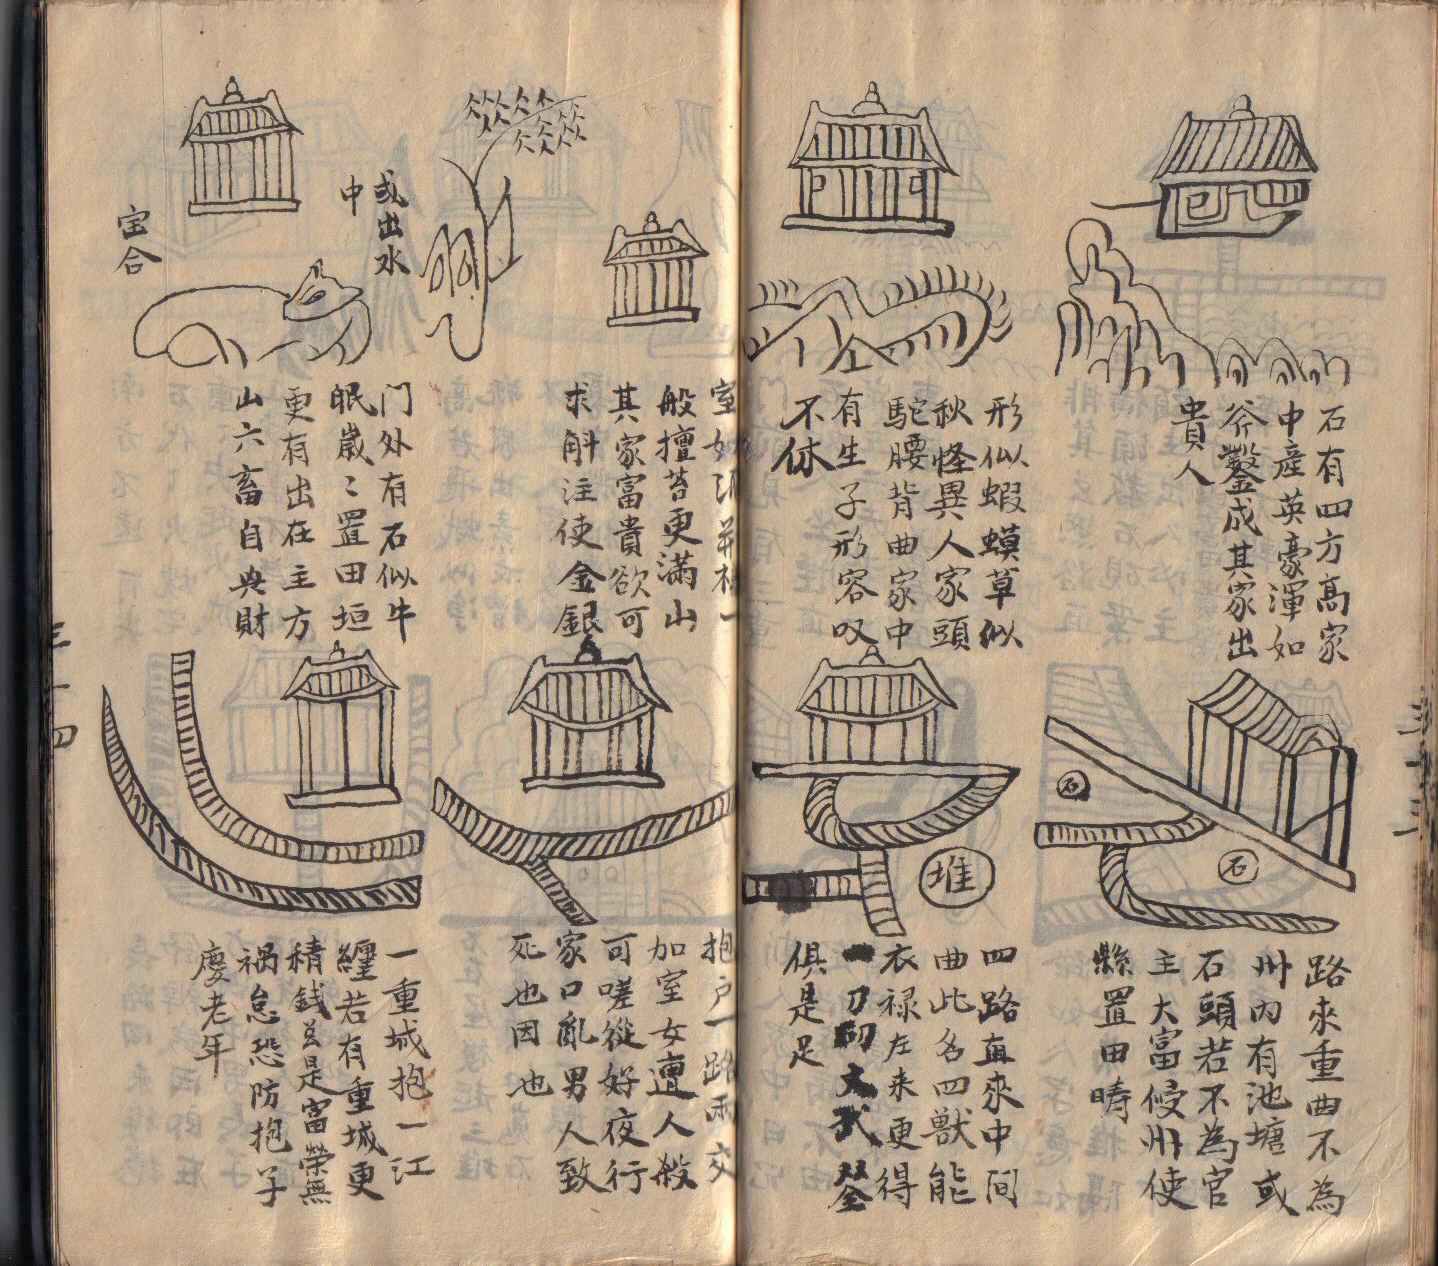 石有四方高家
中產英豪渾如
斧鑿成其家出
貴人
形似蝦蟆草似
秋怪異人家頭
駝腰背曲家中
有生子形容叹
不休
石
石
路來重曲不為
州内有池塘或
石頭若不為官
主大富候州使
縣置田疇
堆
四路直來中间
曲此名四獸能
衣禄左来更得
一刀
文武
俱是足
三十三
室如
一
般擅苔更滿山
其家富貴欲可
求斛注使金銀
或出水
中
宝合
门外有石似牛
眠歲〻置田垣
更有出在主方
山六畜自典財
抱户一路兩交
加室女遭人殺
可嗟從好夜行
家口亂男人致
死也因也
一重城抱一江
纏若有重城更
積錢並是富榮無
禍怠恐防抱子
慶老年
三十四